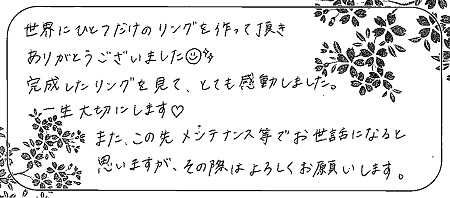 世界にひとつだけのリングを作って頂き
ありがとうございました☺♪
完成したリングを見て、とても感動しました。
一生大切にします♡
また、この先メンテナンス等でお世話になると
思いますが、その際はよろしくお願いします。